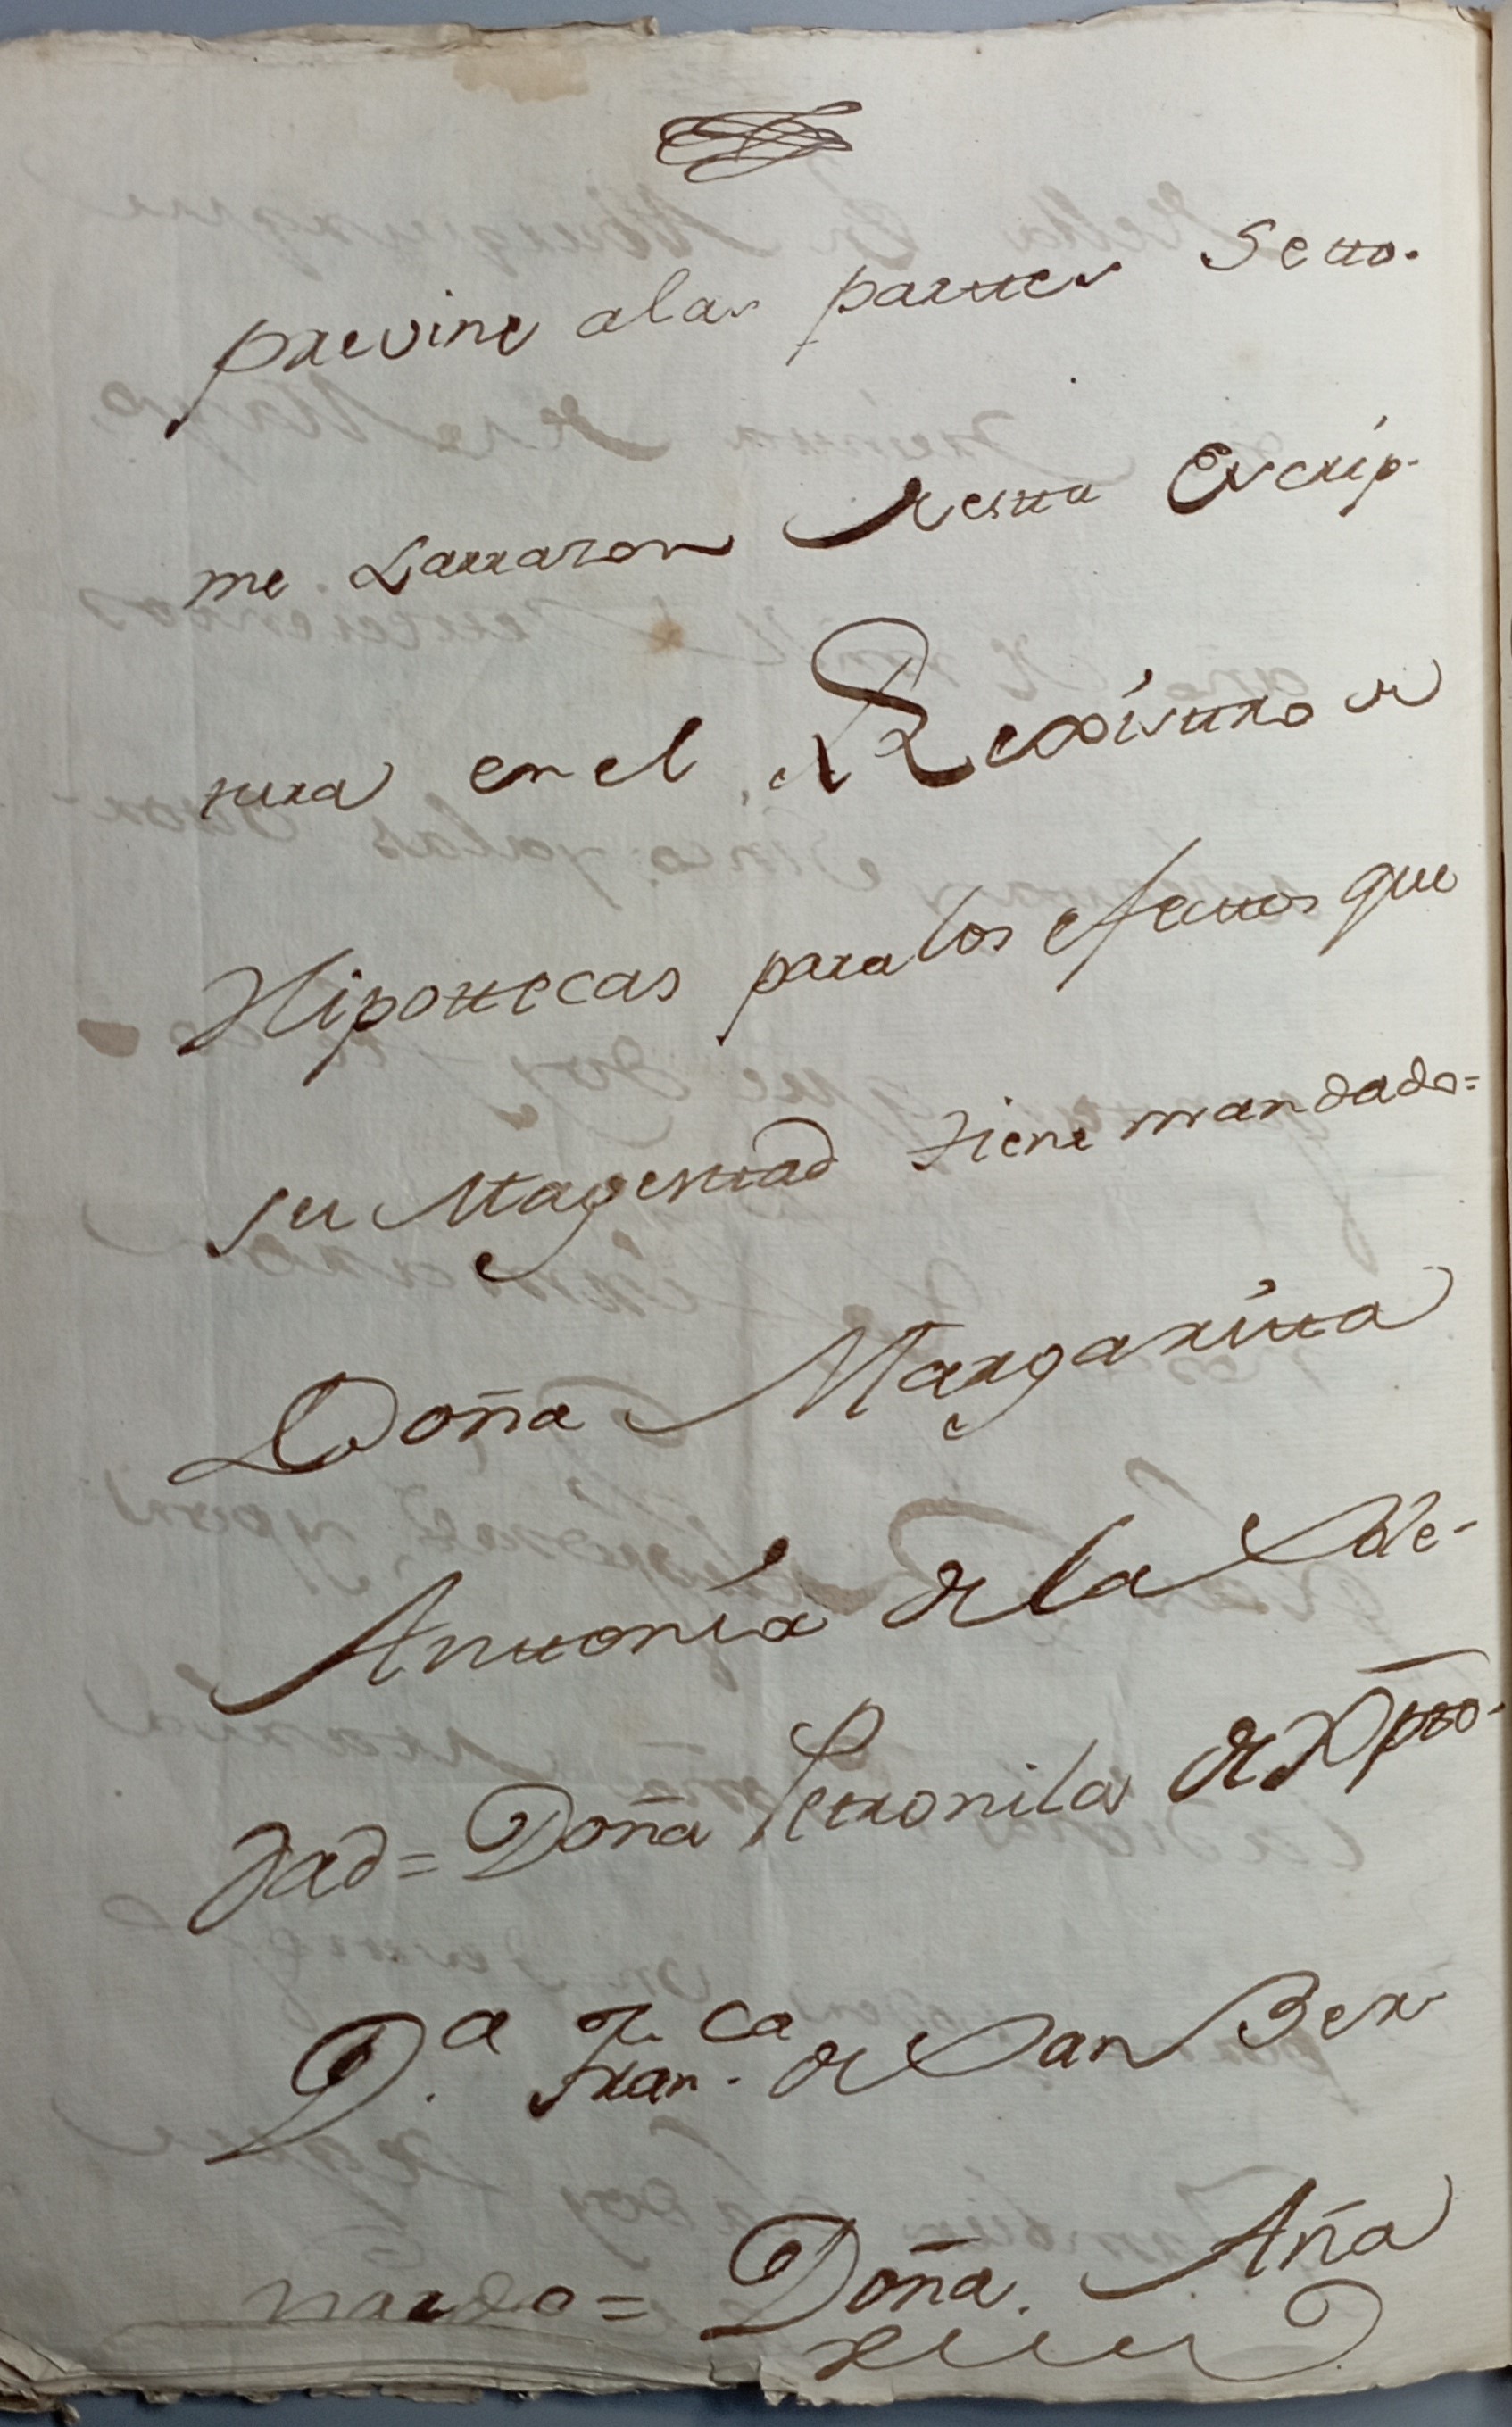 previne a las parttes Setto.
me Larrazon de estta Escrip-
tura en el Rexisttro de
Hipottecas para los efecttos que
su Magesttad tiene mandado=
Doña Margaritta
Anttonia de la Sole-
dad= Doña Pettronila de Xpto.
D.ª Fran.ca de San Ber
nardo= Doña. Ana